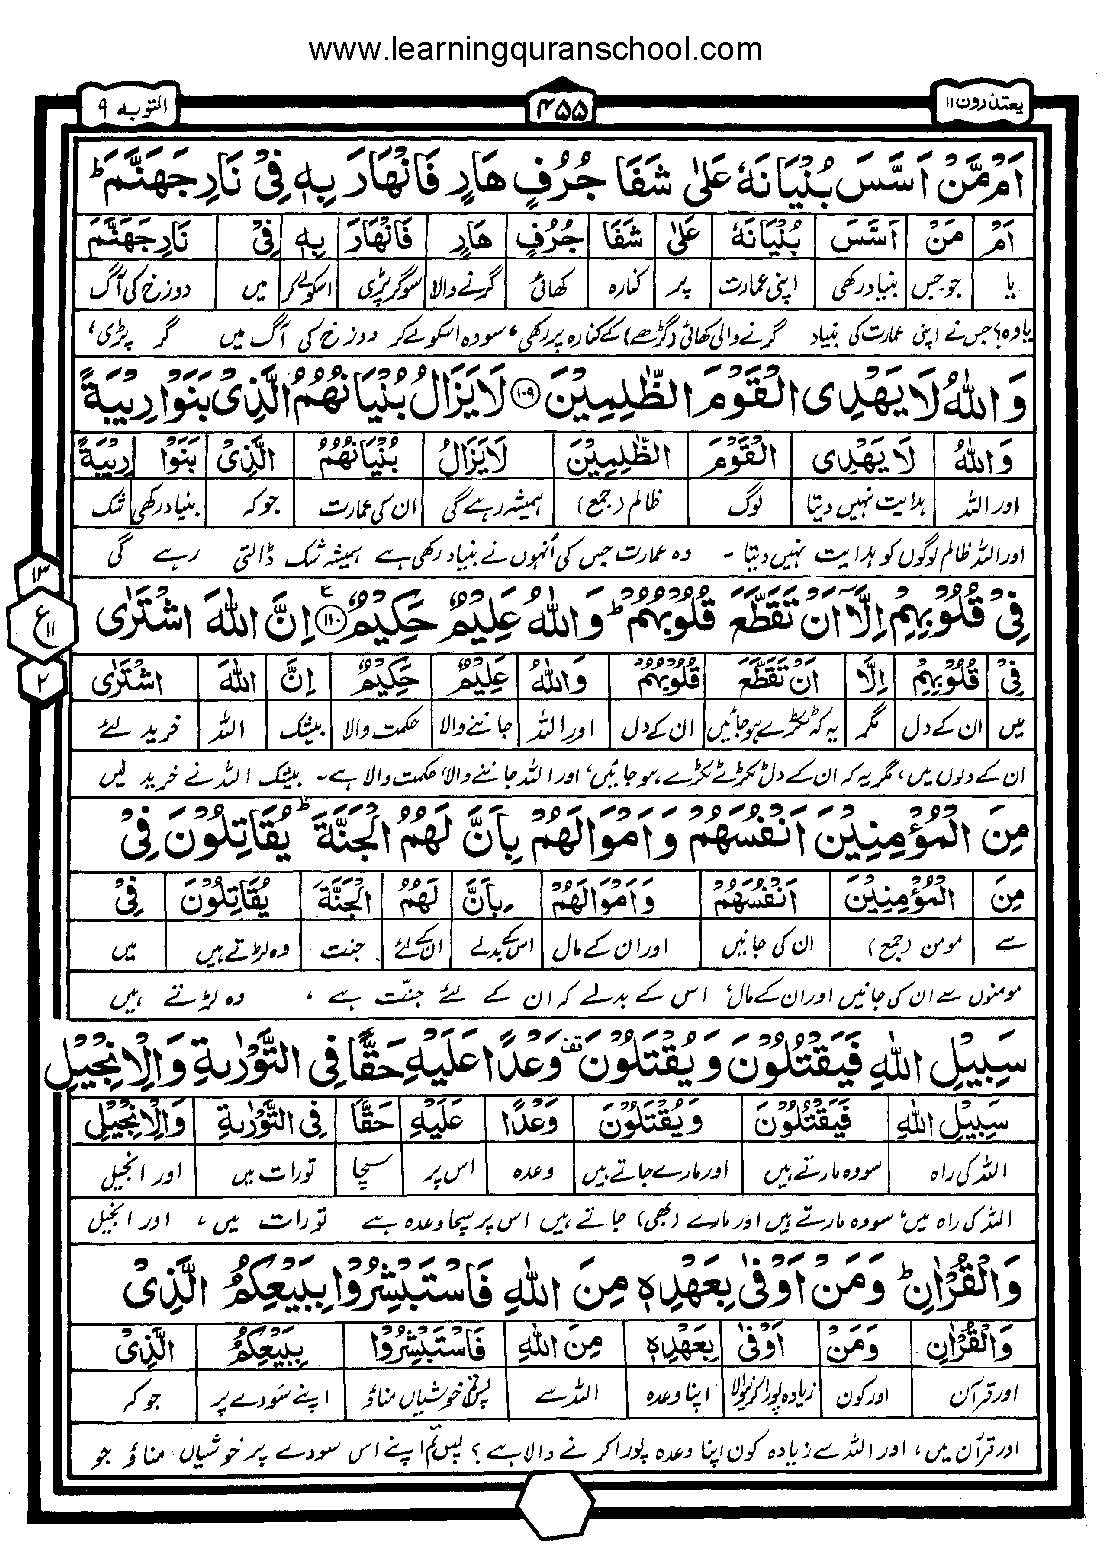 www.learningquranschool.com
یعتذرون ۱۱
۴۵۵
التوبہ ۹
اَمۡ مَّنۡ اَسَّسَ بُنۡیَانَهٗ عَلٰی شَفَا جُرُفٍ هَارٍ فَانۡهَارَ بِهٖ فِیۡ نَارِ جَهَنَّمَ ؕ
اَمۡ مَنۡ اَسَّسَ بُنۡیَانَهٗ عَلٰی شَفَا جُرُفٍ هَارٍ فَانۡهَارَ بِهٖ فِیۡ نَارِ جَهَنَّمَ
یا جو جس بنیاد رکھی اپنی عمارت پر کنارہ کھائی گرنے والا سو گر پڑی اسکو لے کر میں دوزخ کی آگ
یا وہ؟ جس نے اپنی عمارت کی بنیاد گرنے والی کھائی (گڑھے) کے کنارہ پر رکھی، سو وہ اسکو لے کر دوزخ کی آگ میں گر پڑی،
وَاللّٰهُ لَا یَهۡدِی الۡقَوۡمَ الظّٰلِمِیۡنَ ۱۰۹ لَا یَزَالُ بُنۡیَانُهُمُ الَّذِیۡ بَنَوۡا رِیۡبَةً
وَاللّٰهُ لَا یَهۡدِی الۡقَوۡمَ الظّٰلِمِیۡنَ لَا یَزَالُ بُنۡیَانُهُمُ الَّذِیۡ بَنَوۡا رِیۡبَةً
اور اللہ ہدایت نہیں دیتا لوگ ظالم (جمع) ہمیشہ رہے گی ان کی عمارت جو کہ بنیاد رکھی شک
اور اللہ ظالم لوگوں کو ہدایت نہیں دیتا - وہ عمارت جس کی اُنہوں نے بنیاد رکھی ہے ہمیشہ شک ڈالتی رہے گی
۱۳
ع ۱۱
۲
فِیۡ قُلُوۡبِهِمۡ اِلَّاۤ اَنۡ تَقَطَّعَ قُلُوۡبُهُمۡ ؕ وَاللّٰهُ عَلِیۡمٌ حَکِیۡمٌ ۱۱۰ اِنَّ اللّٰهَ اشۡتَرٰی
فِیۡ قُلُوۡبِهِمۡ اِلَّا اَنۡ تَقَطَّعَ قُلُوۡبُهُمۡ وَاللّٰهُ عَلِیۡمٌ حَکِیۡمٌ اِنَّ اللّٰهَ اشۡتَرٰی
میں ان کے دل مگر یہ کہ ٹکڑے ہو جائیں ان کے دل اور اللہ جاننے والا حکمت والا بیشک اللہ خرید لئے
ان کے دلوں میں، مگر یہ کہ ان کے دل ٹکڑے ٹکڑے ہو جائیں، اور اللہ جاننے والا، حکمت والا ہے - بیشک اللہ نے خرید لیں
مِنَ الۡمُؤۡمِنِیۡنَ اَنۡفُسَهُمۡ وَاَمۡوَالَهُمۡ بِاَنَّ لَهُمُ الۡجَنَّةَ ؕ یُقَاتِلُوۡنَ فِیۡ
مِنَ الۡمُؤۡمِنِیۡنَ اَنۡفُسَهُمۡ وَاَمۡوَالَهُمۡ بِاَنَّ لَهُمُ الۡجَنَّةَ یُقَاتِلُوۡنَ فِیۡ
سے مومن (جمع) ان کی جانیں اور ان کے مال اس کے بدلے ان کے لئے جنت وہ لڑتے ہیں میں
مومنوں سے ان کی جانیں اور ان کے مال، اس کے بدلے کہ ان کے لئے جنّت ہے، وہ لڑتے ہیں
سَبِیۡلِ اللّٰهِ فَیَقۡتُلُوۡنَ وَیُقۡتَلُوۡنَ قف وَعۡدًا عَلَیۡهِ حَقًّا فِی التَّوۡرٰىةِ وَالۡاِنۡجِیۡلِ
سَبِیۡلِ اللّٰهِ فَیَقۡتُلُوۡنَ وَیُقۡتَلُوۡنَ وَعۡدًا عَلَیۡهِ حَقًّا فِی التَّوۡرٰىةِ وَالۡاِنۡجِیۡلِ
اللہ کی راہ سو وہ مارتے ہیں اور مارے جاتے ہیں وعدہ اس پر سچا تورات میں اور انجیل
اللہ کی راہ میں، سو وہ مارتے ہیں اور مارے (بھی) جاتے ہیں اس پر سچا وعدہ ہے تورات میں، اور انجیل
وَالۡقُرۡاٰنِ ؕ وَمَنۡ اَوۡفٰی بِعَهۡدِهٖ مِنَ اللّٰهِ فَاسۡتَبۡشِرُوۡا بِبَیۡعِکُمُ الَّذِیۡ
وَالۡقُرۡاٰنِ وَمَنۡ اَوۡفٰی بِعَهۡدِهٖ مِنَ اللّٰهِ فَاسۡتَبۡشِرُوۡا بِبَیۡعِکُمُ الَّذِیۡ
اور قرآن اور کون زیادہ پورا کرنیوالا اپنا وعدہ اللہ سے پس تم خوشیاں مناؤ اپنے سودے پر جو کہ
اور قرآن میں، اور اللہ سے زیادہ کون اپنا وعدہ پورا کرنے والا ہے؟ پس تم اپنے اس سودے پر خوشیاں مناؤ جو